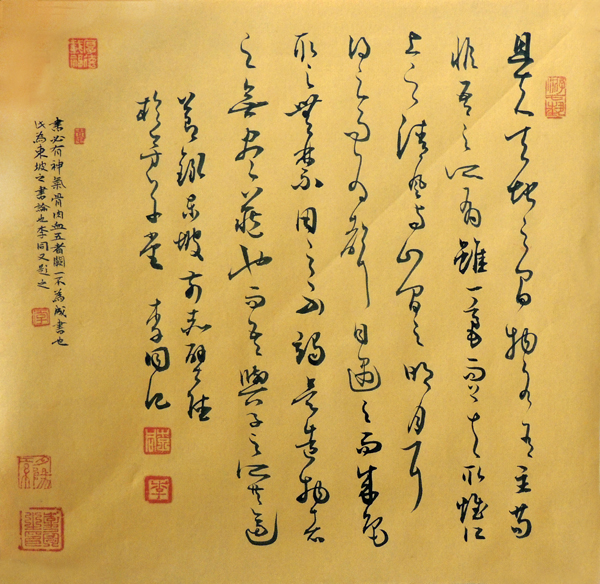 且夫天地之間物各有主苟
非吾之所有雖一毫而莫取惟江
上之清風與山間之明月耳
得之而為聲目遇之而成色
取之無禁用之不竭是造物者
之無盡藏也而吾與子之所共適
節錄東坡前赤壁賦
於 堂 李同記
書必有神氣骨肉血五者闕一不為成書也
此為東坡之書論也李同又題之
李